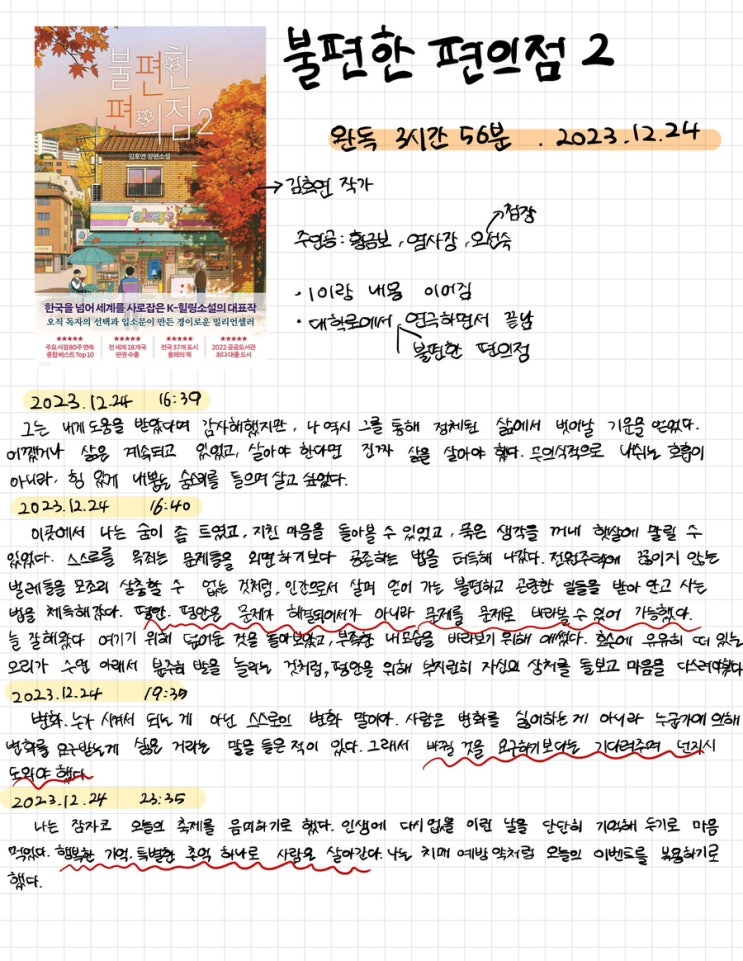 불편한 편의점 2
불편한
편의점2
김호연 장편소설
always
한국을 넘어 세계를 사로잡은 K-힐링소설의 대표작
오직 독자의 선택과 입소문이 만든 경이로운 밀리언셀러
★★★★★ ★★★★★ ★★★★★ ★★★★★
주요 서점 80주 연속 전 세계 18개국 전국 37개 도시 2022 공공도서관
종합 베스트 Top 10 판권 수출 올해의 책 최다 대출 도서
완독 3시간 56분 . 2023.12.24
→ 김호연 작가
점장
주인공 : 황금보, 염사장, 오선숙
· 1이랑 내용 이어짐
· 대학로에서 연극하면서 끝남
불편한 편의점
2023.12.24 16:39
그는 내게 도움을 받았다며 감사해했지만, 나 역시 그를 통해 정체된 삶에서 벗어날 기운을 얻었다.
어쨌거나 삶은 계속되고 있었고, 살아야 한다면 진짜 삶을 살아야 했다. 무의식적으로 내쉬는 호흡이
아니라, 힘 있게 내뿜는 숨소리를 들으며 살고 싶었다.
2023.12.24 16:40
이곳에서 나는 숨이 좀 트였고, 지친 마음을 돌아볼 수 있었고, 묵은 생각을 꺼내 햇살에 말릴 수
있었다. 스스로를 옥죄는 문제들을 외면하기보다 공존하는 법을 터득해 나갔다. 전원주택에 끊이지 않는
벌레들을 모조리 살충할 수 없는 것처럼, 인간으로서 살며 얻어 가는 불편하고 곤란한 일들을 받아 안고 사는
법을 체득해갔다. 평안. 평안은 문제가 해결되어서가 아니라 문제를 문제로 바라볼 수 있어 가능했다.
늘 잘해왔다 여기기 위해 덮어둔 것을 돌아보았고, 부족한 내 모습을 바라보기 위해 애썼다. 호수에 유유히 떠 있는
오리가 수면 아래서 분주히 발을 놀리는 것처럼, 평안을 위해 부지런히 자신의 상처를 돌보고 마음을 다스려야했다
2023.12.24 19:35
변화. 누가 시켜서 되는 게 아닌 스스로의 변화 말이다. 사람은 변화를 싫어하는게 아니라 누군가에 의해
변화를 요구받는게 싫은 거라는 말을 들은 적이 있다. 그래서 바뀔 것을 요구하기보다는 기다려주며 넌지시
도와야 했다.
2023.12.24 23:35
나는 잠자코 오늘의 축제를 음미하기로 했다. 인생에 다시 없을 이런 날을 단단히 기억해 두기로 마음
먹었다. 행복한 기억, 특별한 추억 하나로 사람은 살아간다. 나는 치매 예방 약처럼 오늘의 이벤트를 복용하기로
했다.